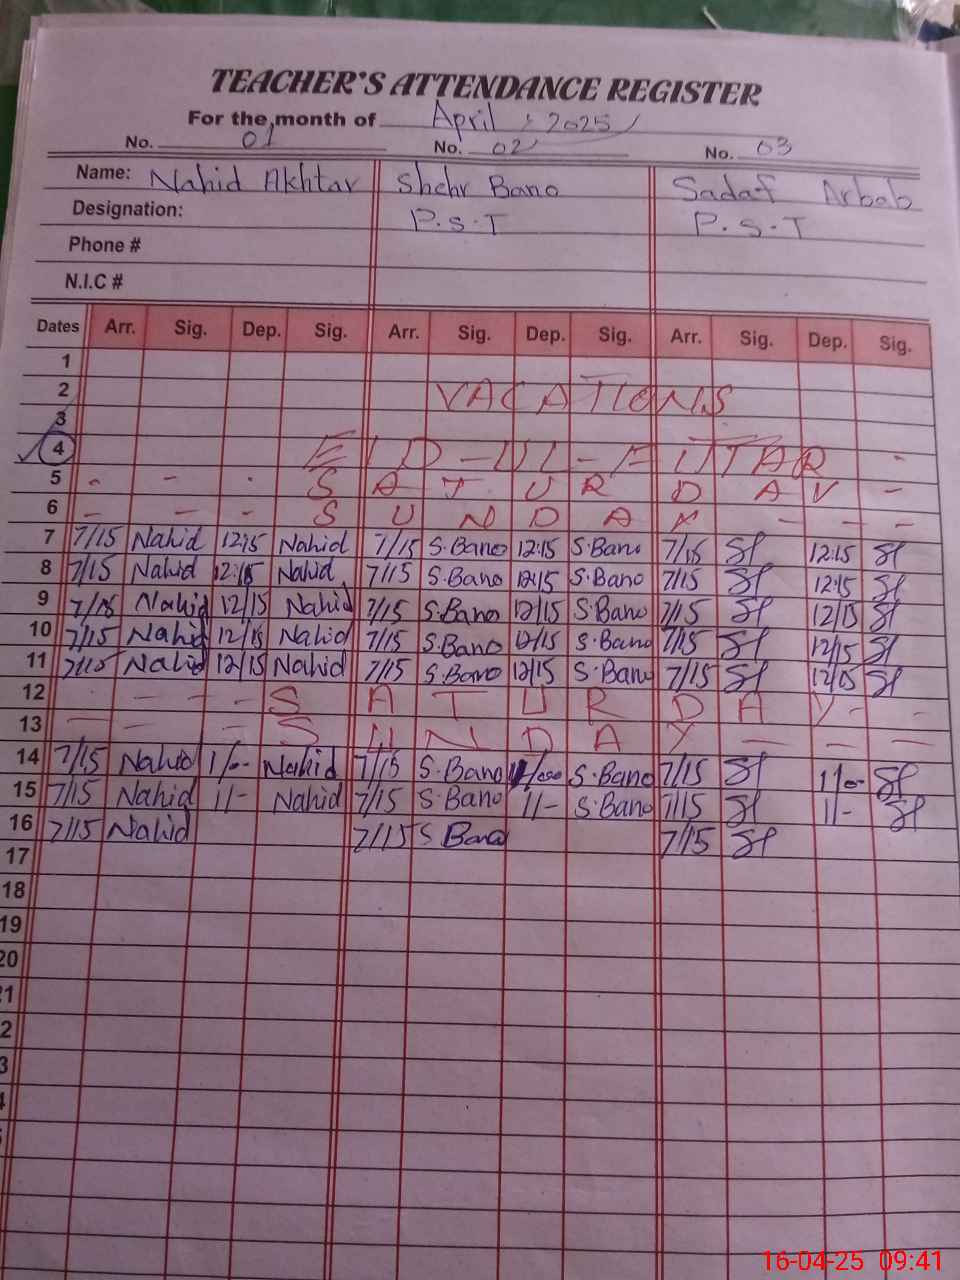 TEACHER'S ATTENDANCE REGISTER
For the month of April, 2025
No. 01 No. 02 No. 03
Name: Nahid Akhtar Shehr Bano Sadaf Arbab
Designation: P.S.T P.S.T
Phone #
N.I.C #
Dates Arr. Sig. Dep. Sig. Arr. Sig. Dep. Sig. Arr. Sig. Dep. Sig.
1
2 VACATIONS
3
4 EID-UL-FITAR -
5 - - - SATURDAY -
6 - - - SUNDAY - - -
7 7/15 Nahid 12:15 Nahid 7/15 S.Bano 12:15 S.Bano 7/15 12:15
8 7/15 Nahid 12:15 Nahid 7/15 S.Bano 12:15 S.Bano 7/15 12:15
9 7/15 Nahid 12/15 Nahid 7/15 S.Bano 12/15 S.Bano 7/15 12/15
10 7/15 Nahid 12/15 Nahid 7/15 S.Bano 12/15 S.Bano 7/15 12/15
11 7/15 Nahid 12/15 Nahid 7/15 S.Bano 12/15 S.Bano 7/15 12/15
12 - - - SATURDAY - -
13 - - - SUNDAY - - -
14 7/15 Nahid Nahid 7/15 S.Bano S.Bano 7/15
15 7/15 Nahid 11/- Nahid 7/15 S.Bano 11/- S.Bano 7/15 11/-
16 7/15 Nahid 7/15 S Bano 7/15
17
18
19
20
21
2
3
4
5
16-04-25 09:41